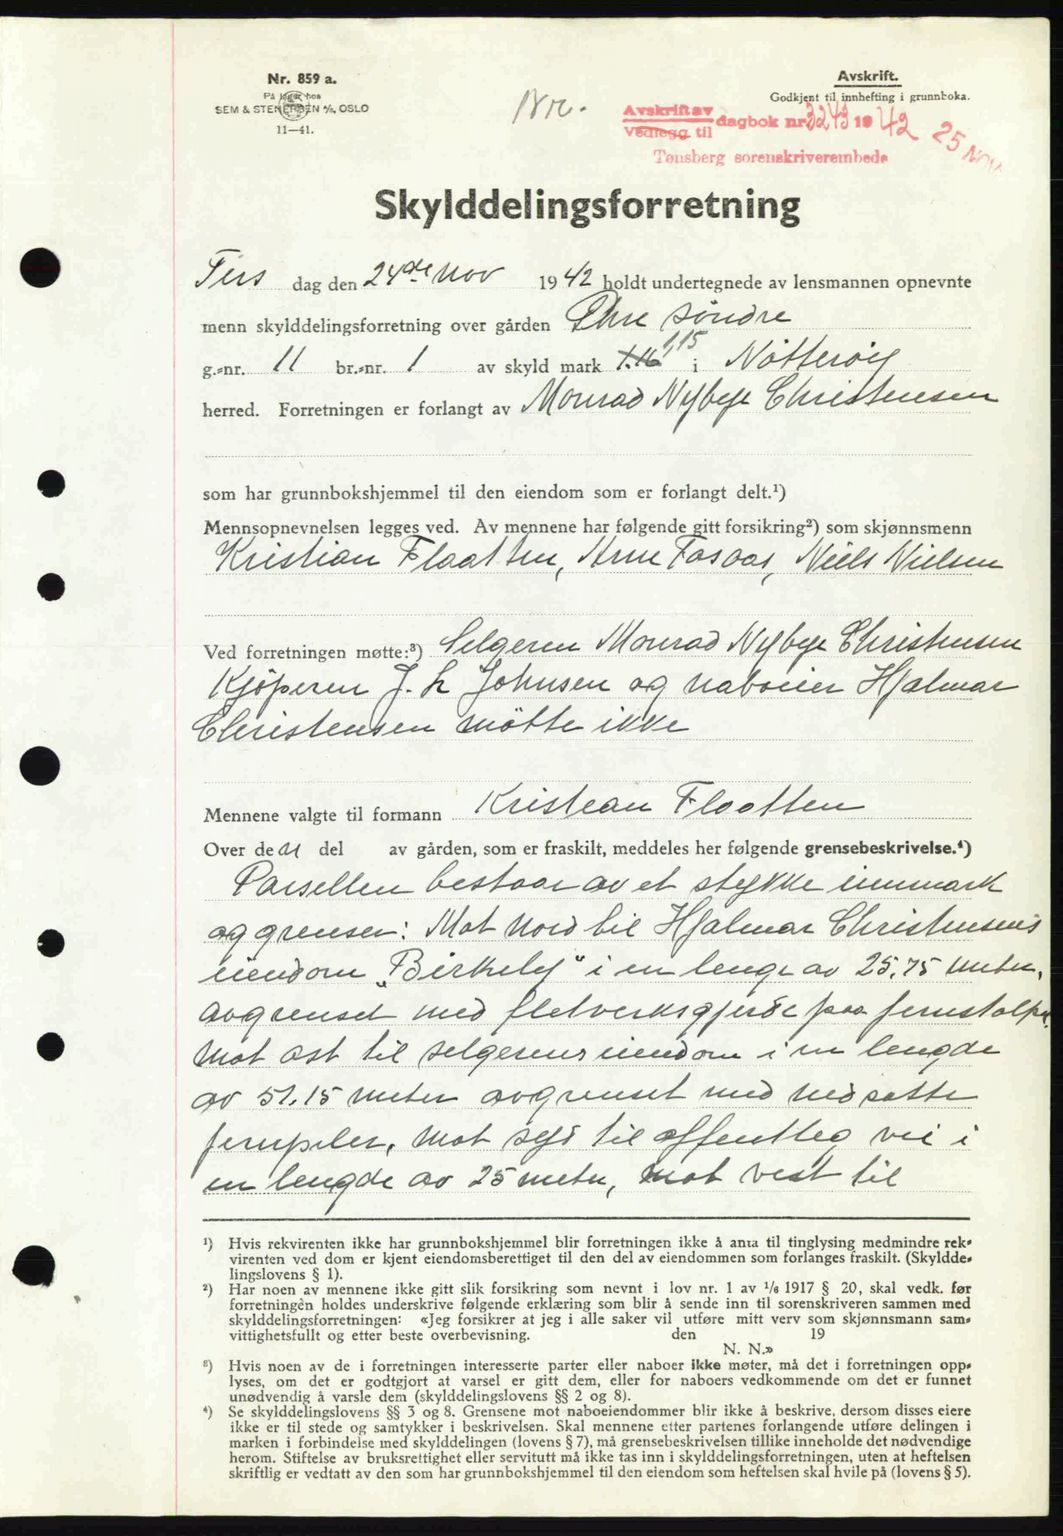 Nr. 859 a.
På lager hos
SEM & STENERSEN A/S, OSLO
11—41.
Nr.
Avskrift.
Godkjent til innhefting i grunnboka.
Avskrift av
Vedlegg til dagbok nr 3243 1942 25 NOV
Tønsberg sorenskriverembede
Skylddelingsforretning
Tirs dag den 24de Nov 1942 holdt undertegnede av lensmannen opnevnte
menn skylddelingsforretning over gården Øhre søndre
g.-nr. 11 br.-nr. 1 av skyld mark 1.16 1,15 i Nötteröy
herred. Forretningen er forlangt av Monrad Nybye Christensen
som har grunnbokshjemmel til den eiendom som er forlangt delt.¹)
Mennsopnevnelsen legges ved. Av mennene har følgende gitt forsikring²) som skjønnsmenn
Kristian Flaatten, Arne Fosaas, Niels Nielsen
Ved forretningen møtte:³) Selgeren Monrad Nybye Christensen
Kjöperen J. L Johnsen og naboeier Hjalmar
Christensen mötte ikke
Mennene valgte til formann Kristian Flaatten
Over de en del av gården, som er fraskilt, meddeles her følgende grensebeskrivelse.⁴)
Parsellen bestaar av et stykke innmark
og grenser: Mot Nord til Hjalmar Christensens
eiendom „Birkely" i en lengde av 25,75 meter,
avgrenset med fletverksgjerde paa jernstolper.
Mot öst til selgerens eiendom i en lengde
av 51.15 meter avgrenset med nedsatte
jernpeler, mot syd til offentleg vei i
en lengde av 25 meter, mot vest til
¹) Hvis rekvirenten ikke har grunnbokshjemmel blir forretningen ikke å anta til tinglysing medmindre rek-
virenten ved dom er kjent eiendomsberettiget til den del av eiendommen som forlanges fraskilt. (Skyldde-
lingslovens § 1).
²) Har noen av mennene ikke gitt slik forsikring som nevnt i lov nr. 1 av 1/6 1917 § 20, skal vedk. før
forretningen holdes underskrive følgende erklæring som blir å sende inn til sorenskriveren sammen med
skylddelingsforretningen: «Jeg forsikrer at jeg i alle saker vil utføre mitt verv som skjønnsmann sam-
vittighetsfullt og etter beste overbevisning. den 19
N. N.»
³) Hvis noen av de i forretningen interesserte parter eller naboer ikke møter, må det i forretningen opp-
lyses, om det er godtgjort at varsel er gitt dem, eller for naboers vedkommende om det er funnet
unødvendig å varsle dem (skylddelingslovens §§ 2 og 8).
⁴) Se skylddelingslovens §§ 3 og 8. Grensene mot naboeiendommer blir ikke å beskrive, dersom disses eiere
ikke er til stede og samtykker i beskrivelsen. Skal mennene etter partenes forlangende utføre delingen i
marken i forbindelse med skylddelingen (lovens § 7), må grensebeskrivelsen tillike inneholde det nødvendige
herom. Stiftelse av bruksrettighet eller servitutt må ikke tas inn i skylddelingsforretningen, uten at heftelsen
skriftlig er vedtatt av den som har grunnbokshjemmel til den eiendom som heftelsen skal hvile på (lovens § 5).